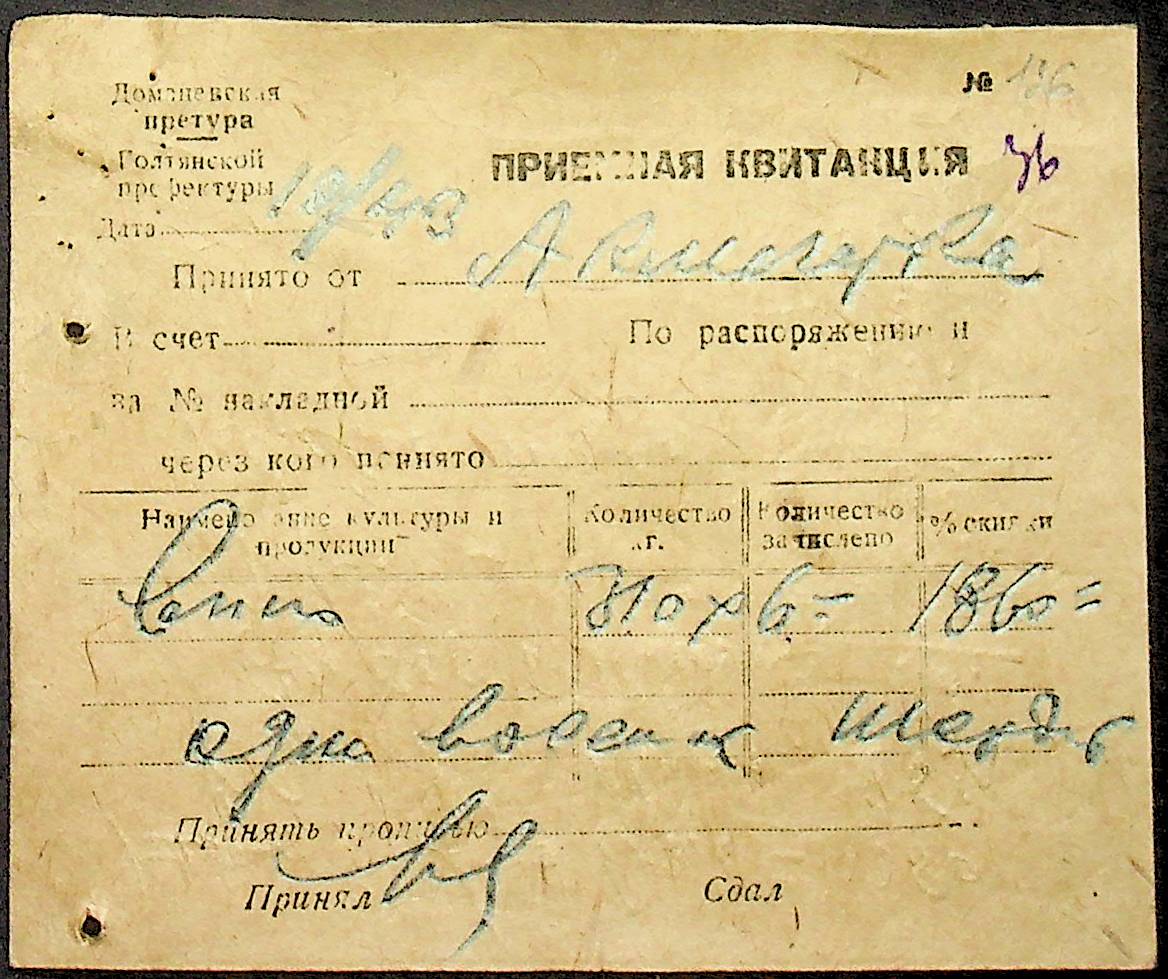 № 136
Доманевская
претура
Голтянской
префектуры
ПРИЕМНАЯ КВИТАНЦИЯ 36
Дата
Принято от
В счет По распоряжению и
за № накладной
через кого принято
Наименование культуры и
продукции
Количество
кг.
Количество
зачислено
% скидки
310 х 6 = 1860 =
одна восем шесдь
Принять прописью
Принял Сдал